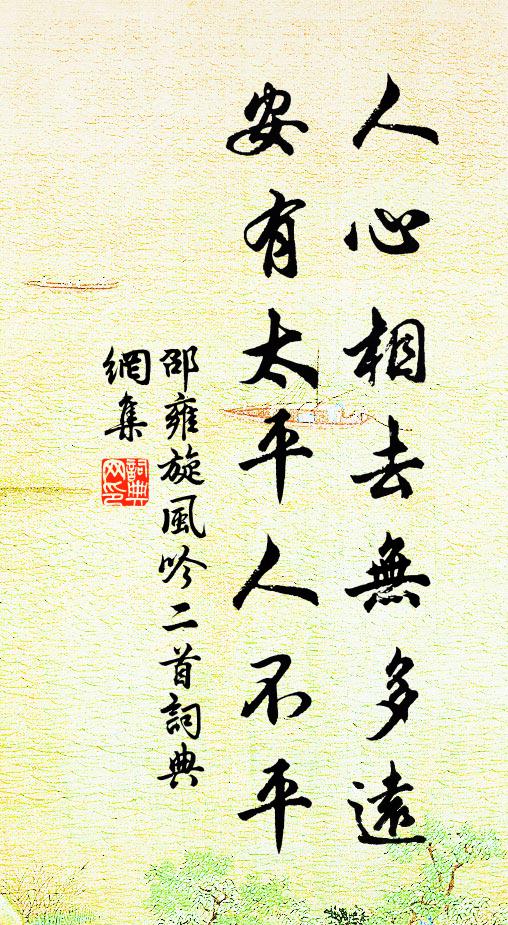 人心相去無多遠
安有太平人不平
邵雍旋風吟二首詞典
網集
詞典
网印